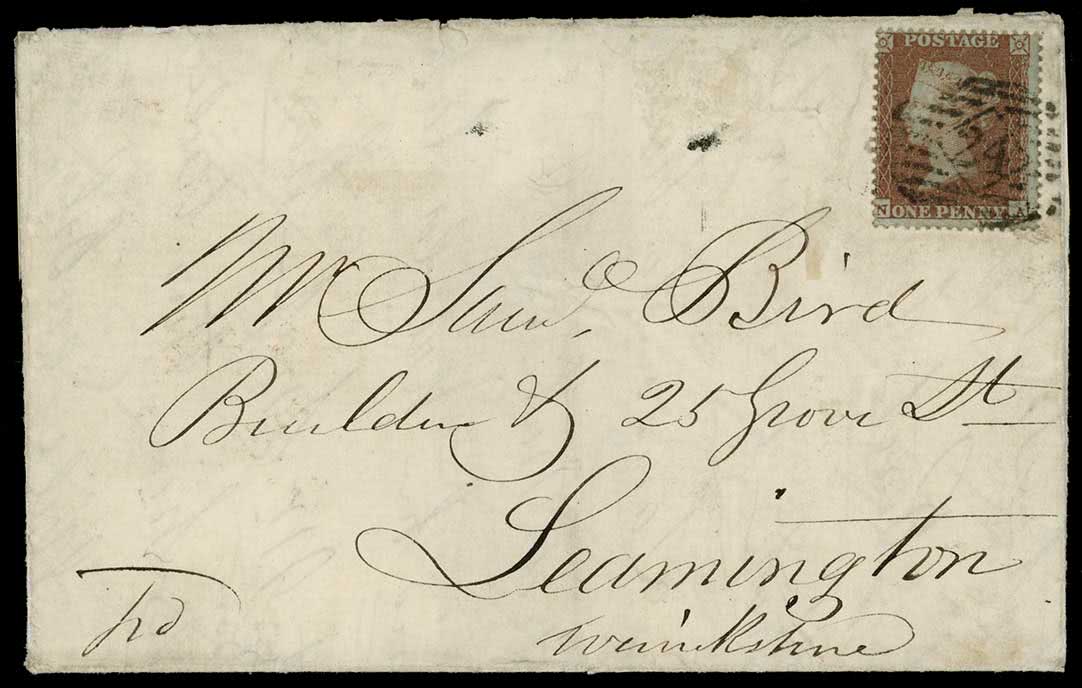 POSTAGE
ONE PENNY
N A
Mr Saml. Bird
Builder & 25 Grove St
Leamington
Warwickshire
pd